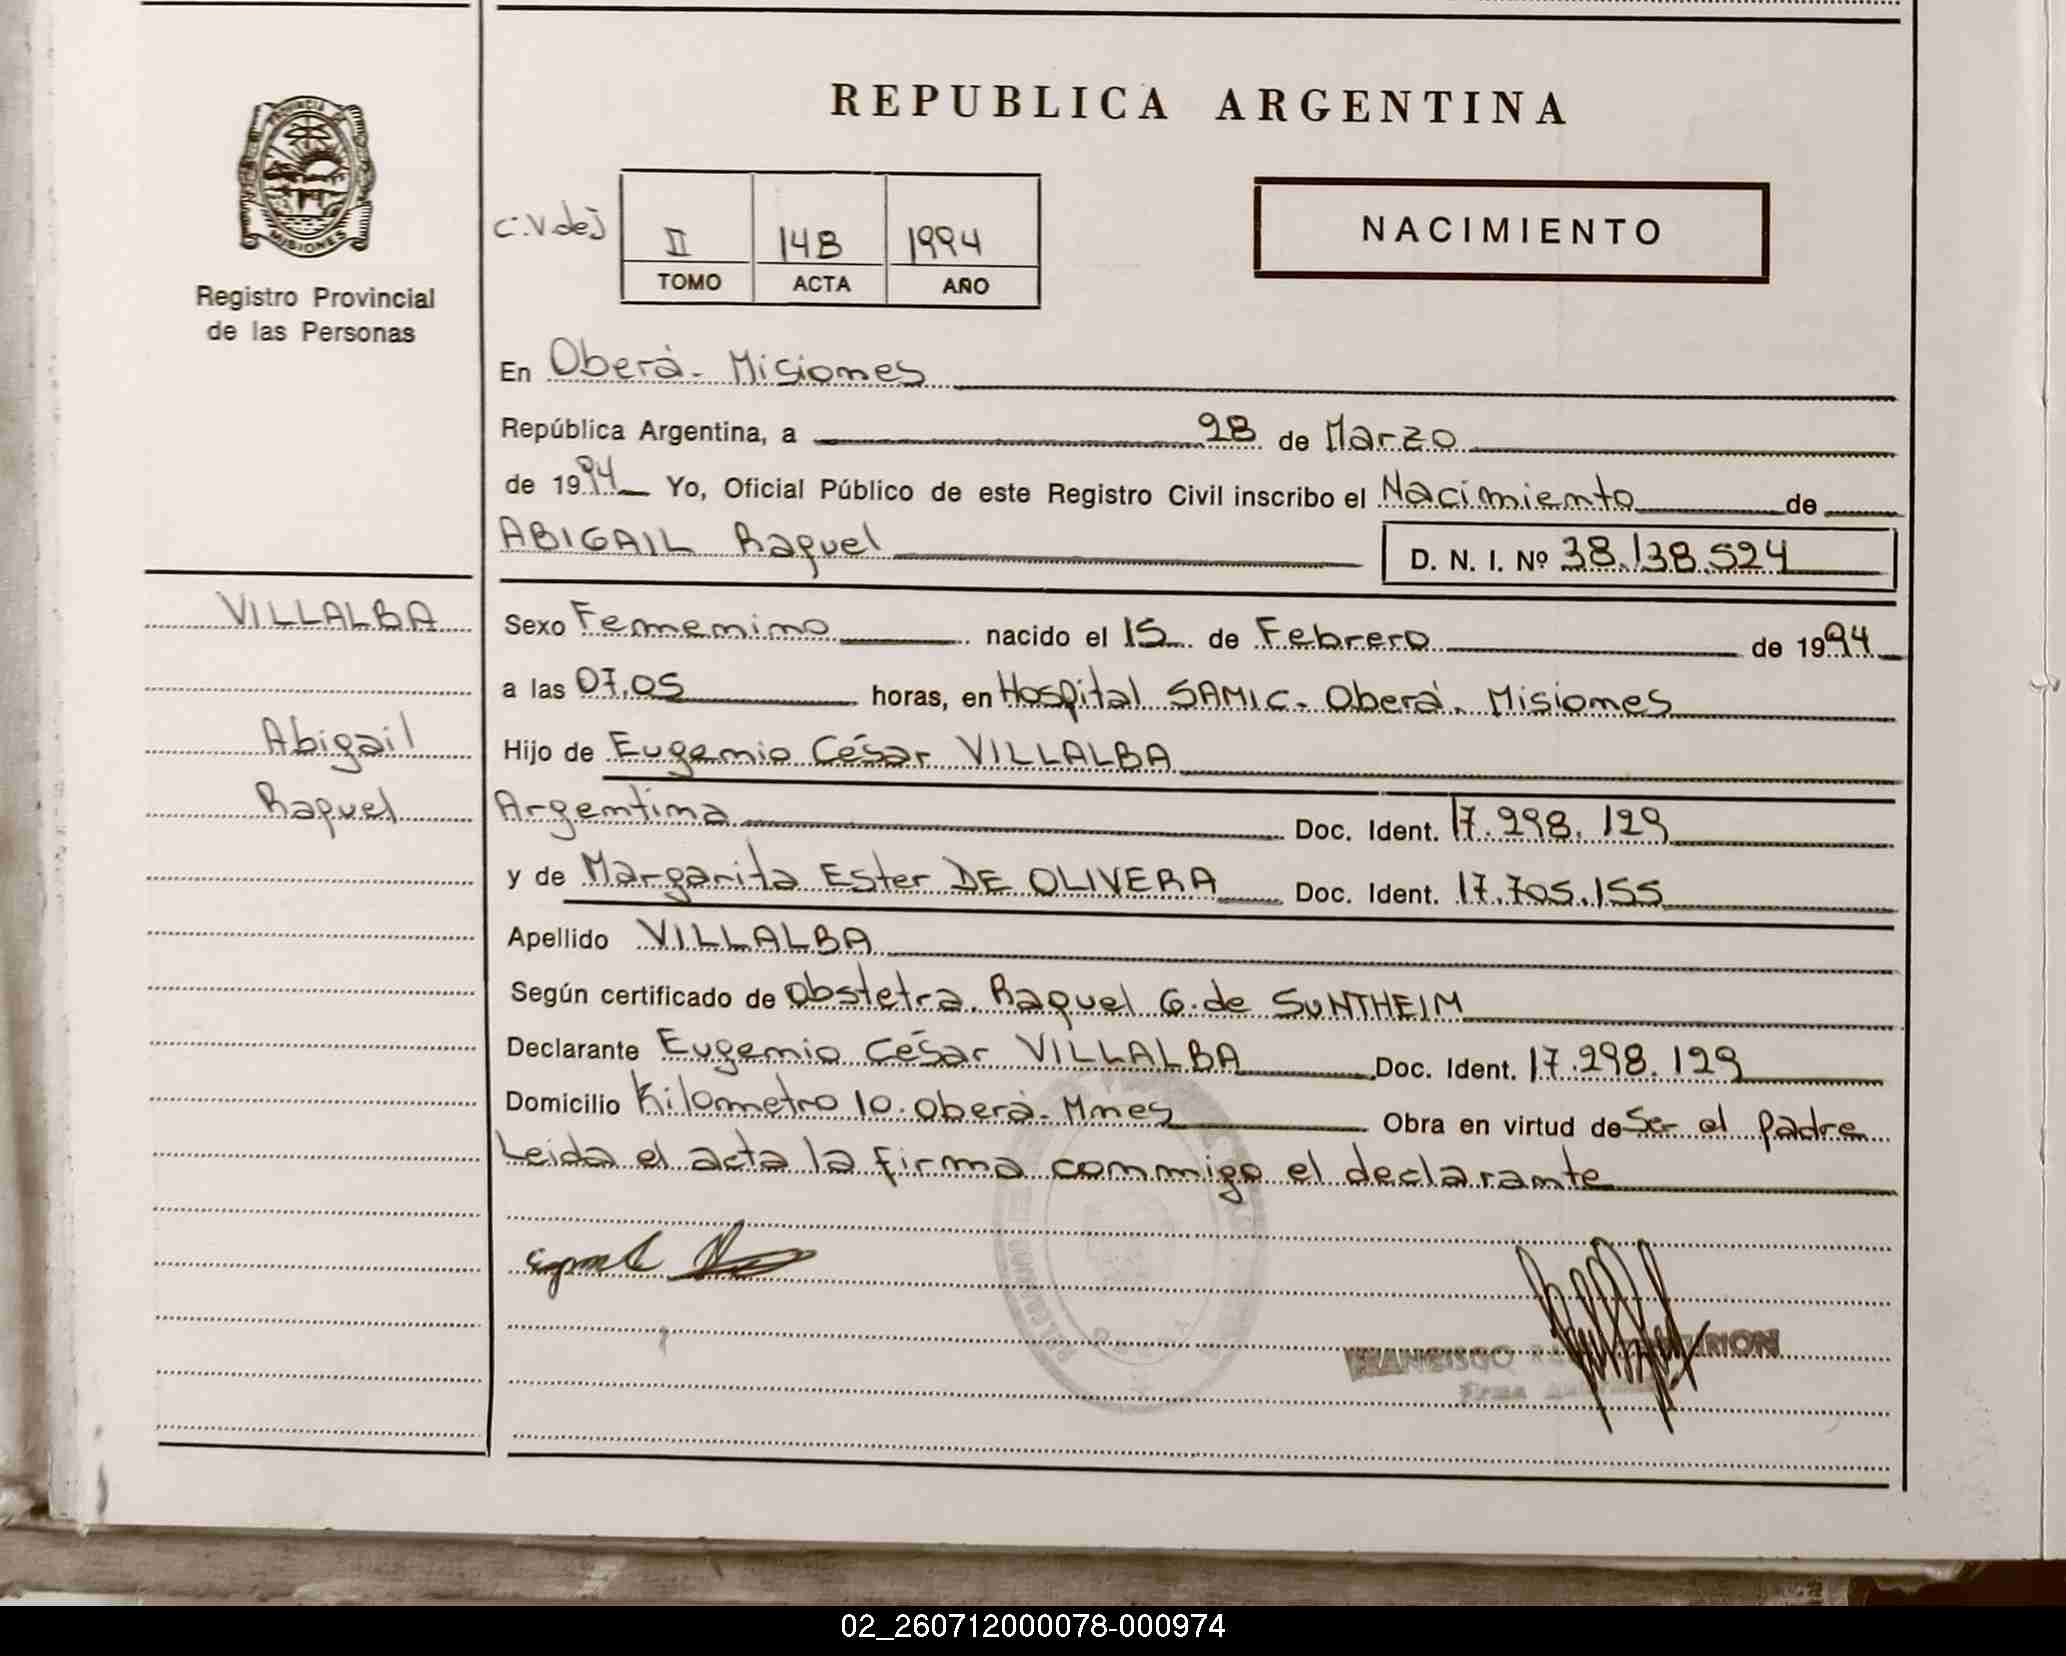 REPUBLICA ARGENTINA
PROVINCIA DE
MISIONES
Registro Provincial
de las Personas
C.V.dej
II 148 1994
TOMO ACTA AÑO
NACIMIENTO
En Oberá- Misiones
República Argentina, a 28 de Marzo
de 1994 Yo, Oficial Público de este Registro Civil inscribo el Nacimiento de
ABIGAIL Raquel D. N. I. Nº 38.138.524
VILLALBA
Abigail
Raquel
Sexo Femenino nacido el 15 de Febrero de 1994
a las 07,05 horas, en Hospital SAMIC- Oberá. Misiones
Hijo de Eugenio César VILLALBA
Argentina Doc. Ident. 17.298.129
y de Margarita Ester DE OLIVERA Doc. Ident. 17.705.155
Apellido VILLALBA
Según certificado de Obstetra. Raquel G. de SUNTHEIM
Declarante Eugenio César VILLALBA Doc. Ident. 17.298.129
Domicilio Kilometro 10. Oberá- Mnes Obra en virtud de Ser el padre
Leida el acta la firma conmigo el declarante
FRANCISCO
02_260712000078-000974